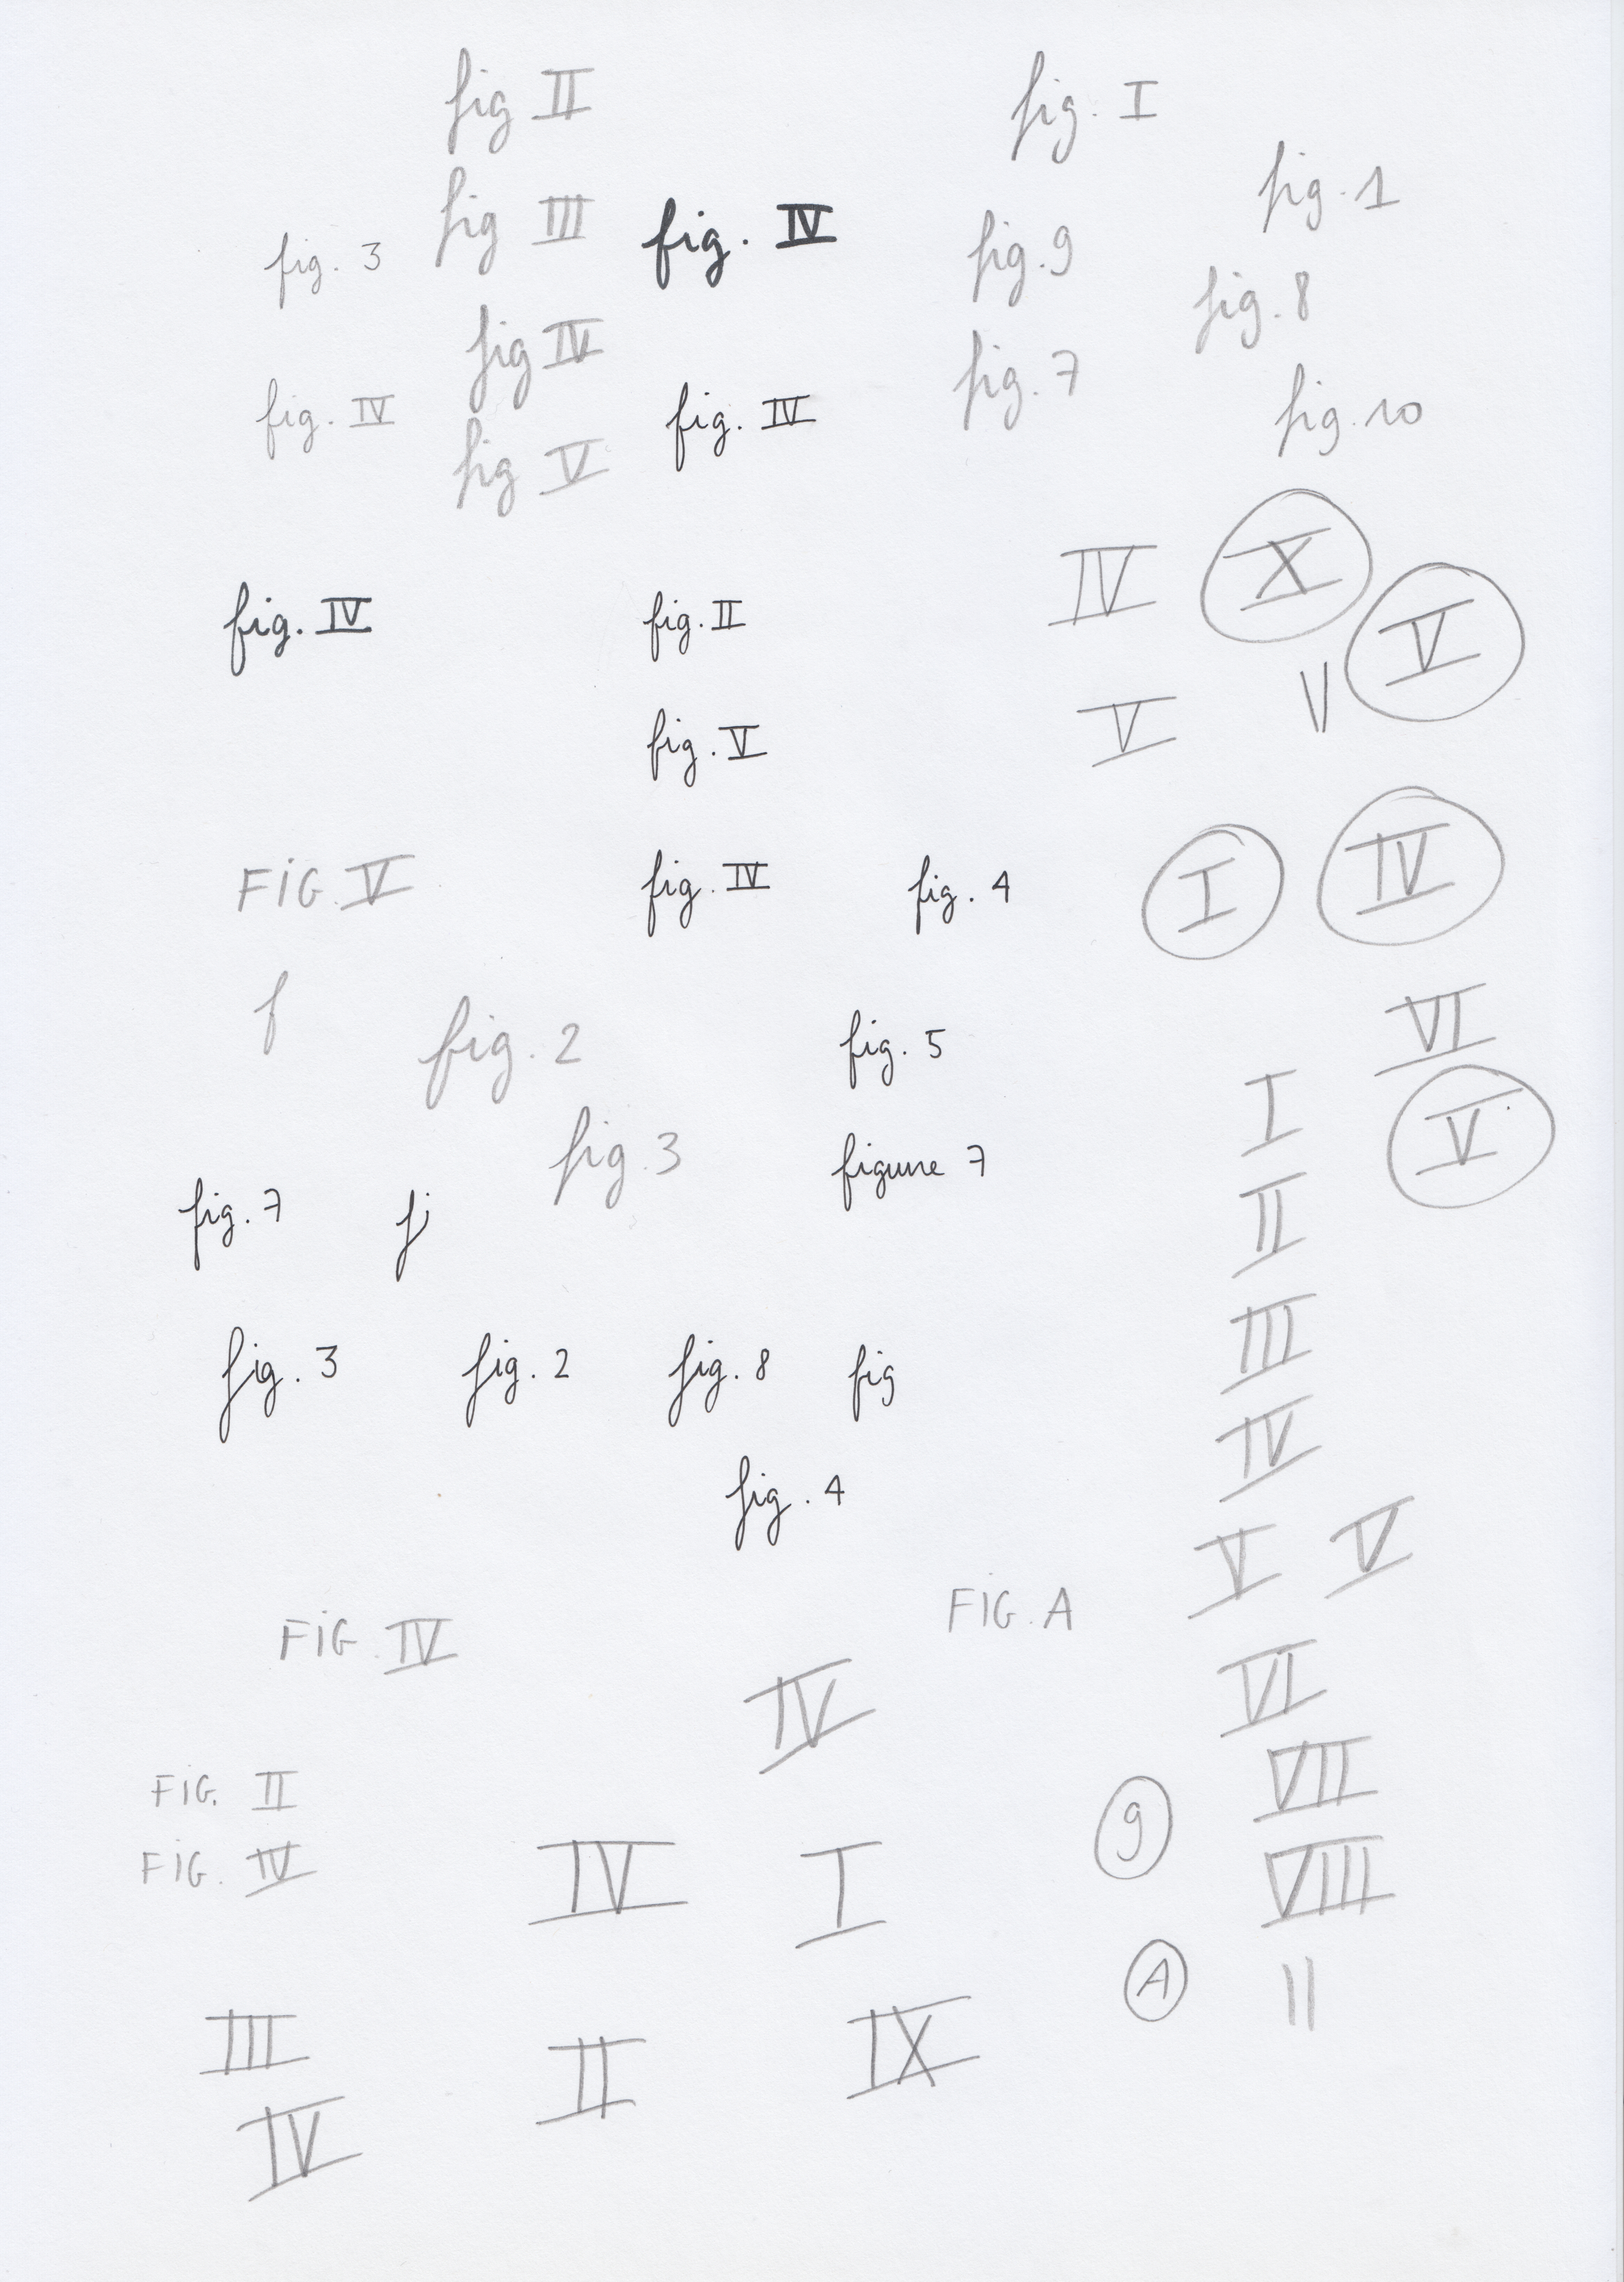 fig II
fig. I
fig. 1
fig III
fig. IV
fig. 9
fig. 3
fig. 8
fig IV
fig. 7
fig. IV
fig. IV
fig. 10
fig V
IV
X
fig. IV
fig. II
V
V
V
fig. V
FIG. V
fig. IV
fig. 4
I
IV
f
fig. 2
fig. 5
VI
I
V
fig. 3
figure 7
fig. 7
fi
II
fig. 3
fig. 2
fig. 8
fig
III
IV
fig. 4
V
V
FIG. IV
FIG. A
IV
VI
FIG. II
VII
FIG. IV
IV
I
9
VIII
A
II
III
II
IX
IV